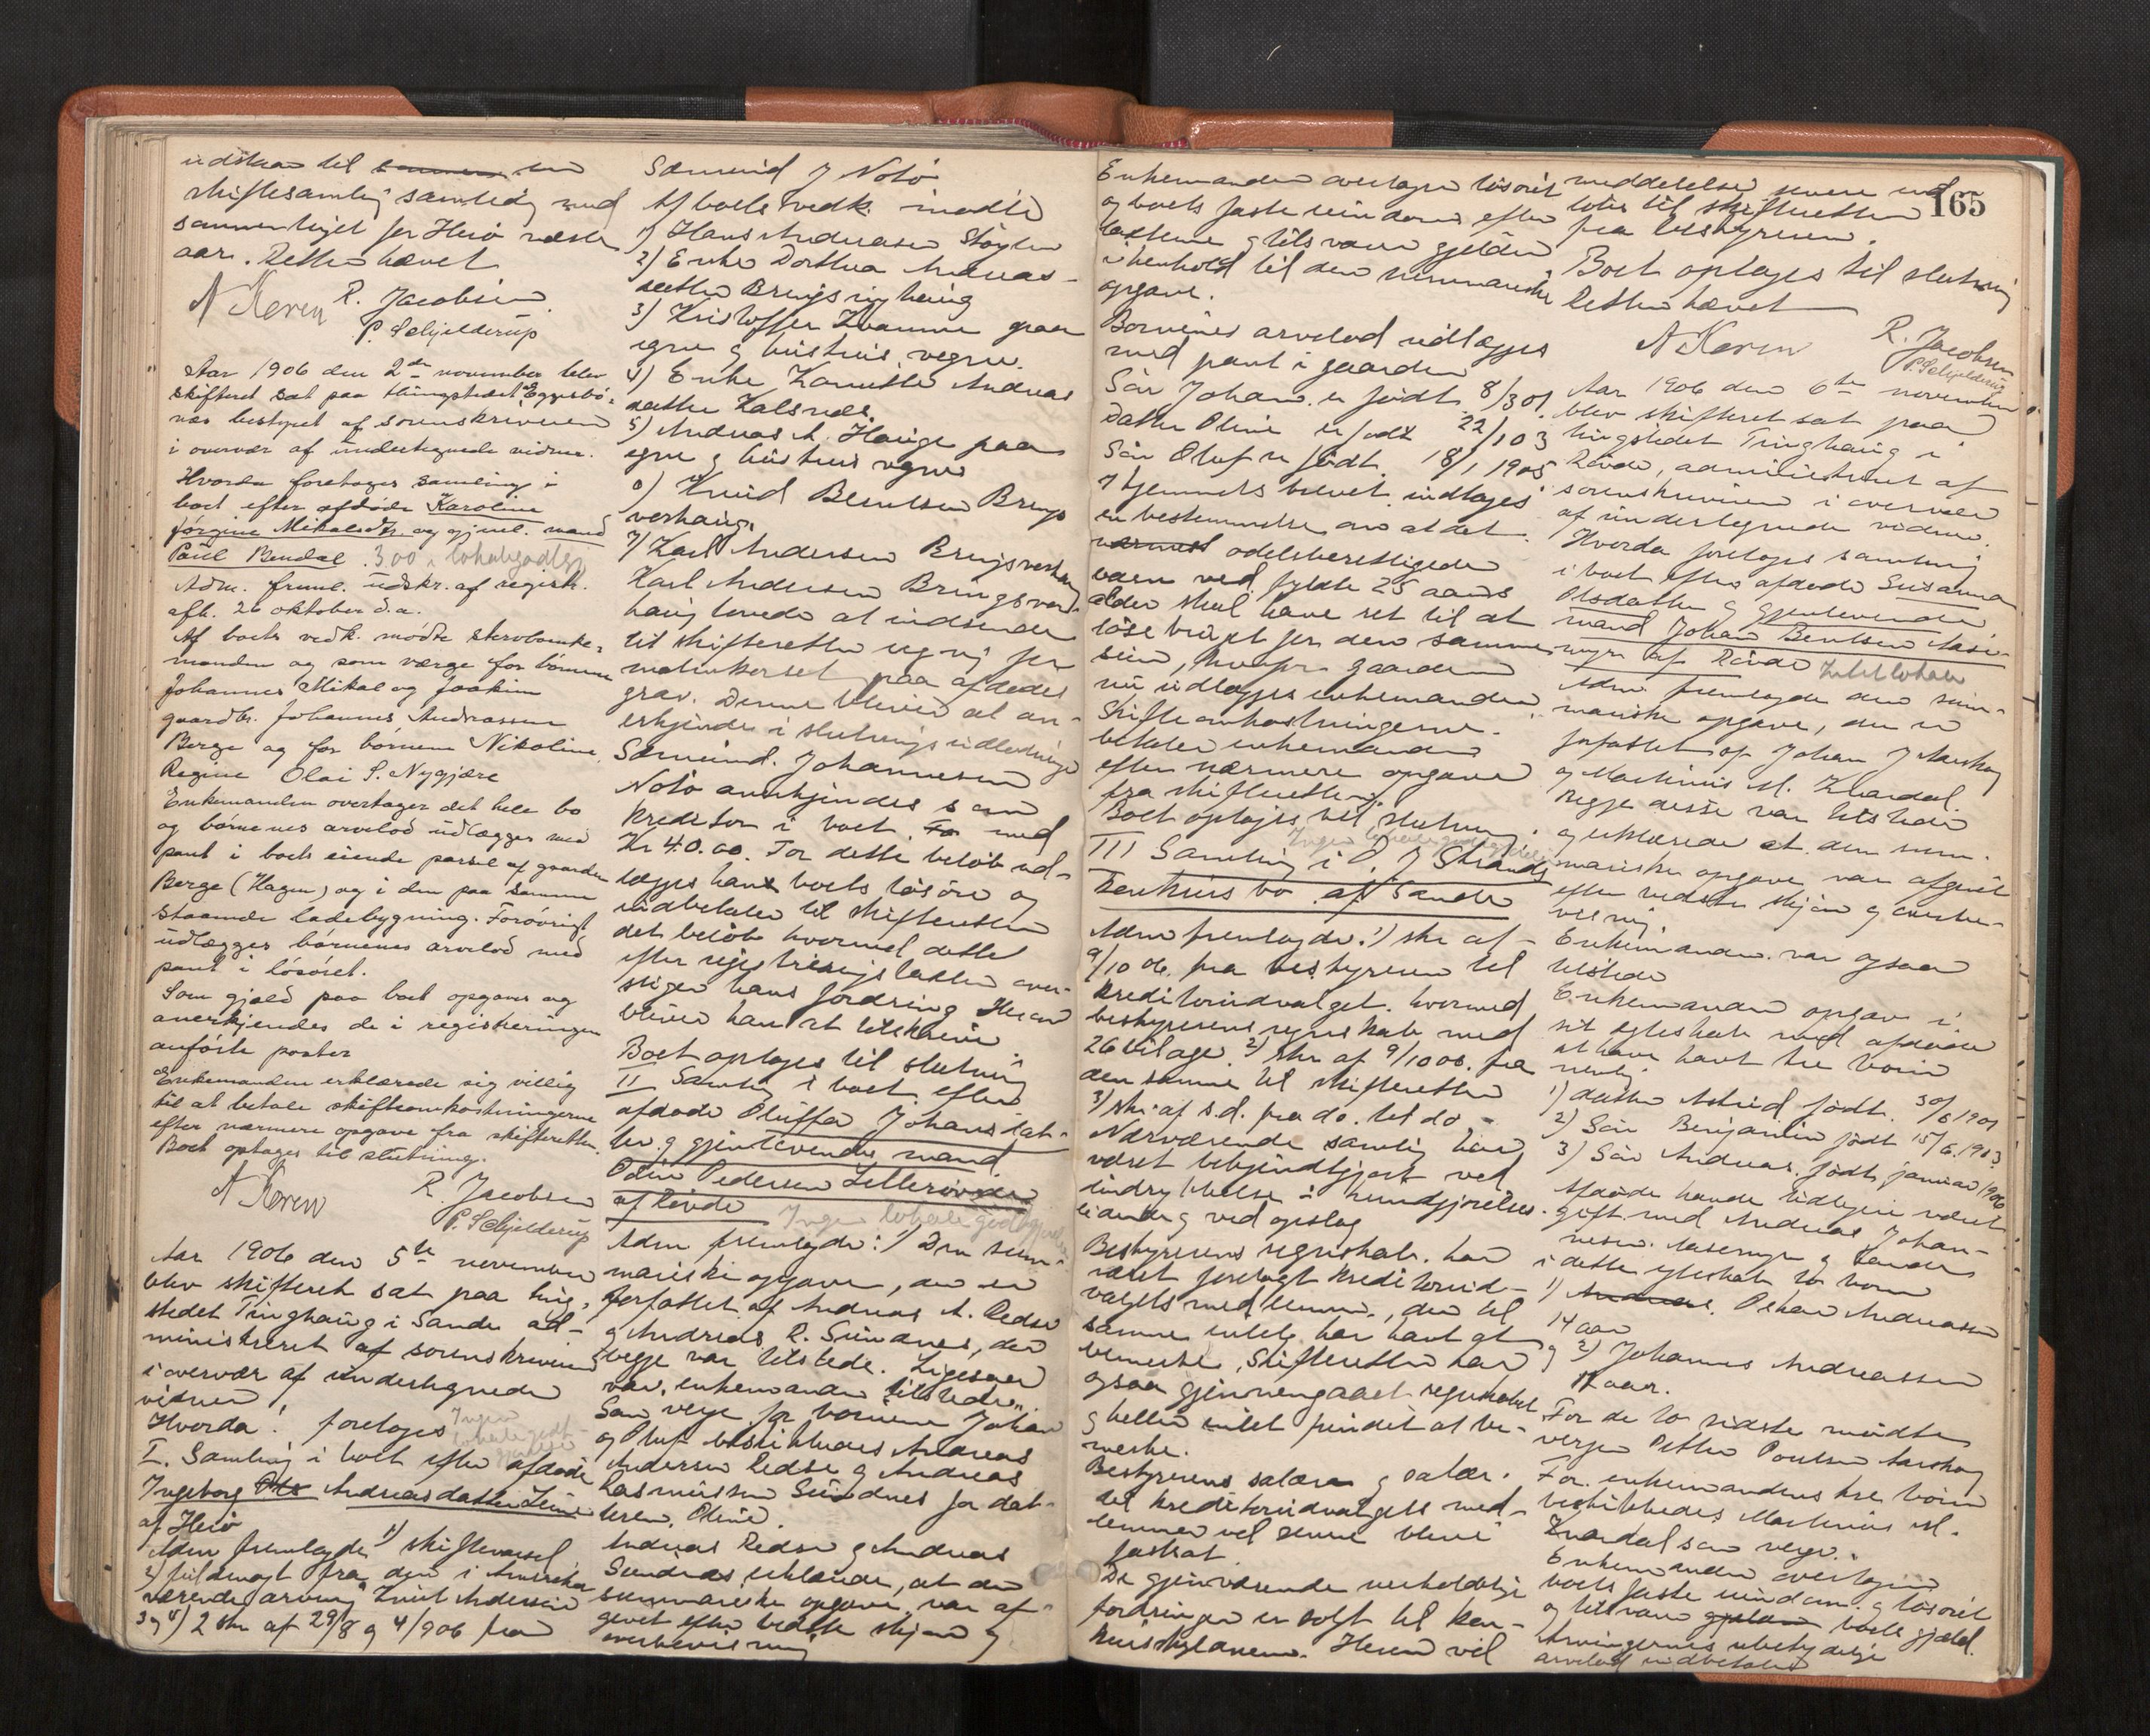 udstaa til en
skiftesamling samtidig med
sammentinget for Herø næste
aar. Retten hævet
A Koren R. Jacobsen
P. Schjelderup
Aar 1906 den 2den november blev
skifteret sat paa thingstedet Eggesbø-
nes bestyret af sorenskriveren
i overvær af undertegnede vidner.
Hvorda foretoges samling i
boet efter afdøde Karoline
Jørgine Mikalsdtr. og gjenl. mand
Paul Bendal. 3.00 i lokalgodtgj
Adm. freml. udskr. af registr.
afh. 26 oktober d.a.
Af boets vedk. mødte sterboenke-
manden og som værge for børnene
Johannes Mikal og Joakim
gaardbr. Johannes Andreassen
Berge og for børnene Nikoline
Regine Olai S. Nygjære
Enkemanden overtager det hele bo
og børnenes arvelod udlægges med
pant i boets eiende parsel af gaarden
Berge (Hagen) og i den paa samme
staaende ladebygning. Forøvrigt
udlægges børnenes arvelod med
pant i løsøret.
Som gjæld paa boet opgaves og
anerkjendes de i registreringen
anførte poster
Enkemanden erklærede sig villig
til at betale skifteomkostningerne
efter nærmere opgave fra skifteretten.
Boet optages til slutning.
A Koren R. Jacobsen
P. Schjelderup
Aar 1906 den 5te november
blev skifteret sat paa ting-
stedet Tinghaug i Sande ad-
ministreret af sorenskriveren
i overvær af undertegnede
vidner,
Hvorda! foretoges Ingen
lokalegodt-
gjørelse
I. Samling i boet efter afdøde
Ingeborg Andreasdatter
af Herø
Adm fremlagde 1) skiftevarsel
2) fuldmagt fra den i Amerika
værende arving Knut Andersen
3 og 4) 2 skr af 29/8 og 4/906 fra
Sæmund J Notø
Af boets vedk. mødte
1) Hans Andreasen Støylen
2) Enke Dorthea Andreas-
datter Bringsinghaug
3) Kristoffer Kvamme paa
egne og hustrus vegne.
4) Enke Kamilla Andreas
datter Kalsnes.
5) Andreas A. Hauge paa
egne og hustrus vegne
6) Knud Berntsen Brings
verhaug.
7) Karl Andersen Bringsverhaug
Karl Andersen Bringsver-
haug lovede at indsende
til skifteretten regning for
paa afdødes
grav. Denne bliver at an-
erkjende i slutningsudlodninge
Sæmund Johannesen
Notø anerkjendes som
kreditor i boet. med
Kr 40.00. For dette beløb ud-
lægges ham boets løsøre og
indbetaler til skifteretten
det beløb hvormed dette
efter registreringstaxten over-
stiger hans fordring. Herom
bliver han at tilskrive
Boet optages til slutning
II Samling i boet efter
afdøde Oluffa Johansdat-
ter og gjenlevende mand
Odin Pedersen
af Røvde Ingen lokalegodtgjørelse
Adm fremlagde: 1) Den sum-
mariske opgave, der er
forfattet af Andreas A. Redse
og Andreas R. Sundnes, der
begge var tilstede. Ligesaa
var enkemanden tilstede.
Som verge for børnene Johan
og Oluf beskikkedes Andreas
Andersen Redse og Andreas
Rasmussen Sundnes for dat-
teren Oline.
Andreas Redse og Andreas
Sundnes erklærede, at den
summariske opgave var af-
givet efter bedste skjøn og
overbevisning
165
Enkemanden overtager løsøret
og boets faste eiendom efter
taxterne og tilsvarer gjelden
i henhold til den summariske
opgave.
Børnenes arvelod udlægges
med pant i gaarden
Søn Johan er født 8/3 01.
Datter Oline er født 22/10 3
Søn Oluf er født 18/1 1905
I hjemmelsbrevet indtages
en bestemmelse om at det
nærmest odelsberettigede
barn ved fyldte 25 aars
alder skal have ret til at
løse bruget for den samme
sum, hvorfor gaarden
nu udlægges enkemanden.
Skifteomkostningerne
betaler enkemanden
efter nærmere opgave
fra skifteretten.
Boet optages til slutning.
Ingen lokalegodtgjørelse
III Samling i O. J Strands
konkurs bo af Sande
Adm fremlagde: 1) skr af
9/10 06. fra bestyreren til
kreditorudvalget hvormed
bestyrerens regnskab med
26 bilage. 2) skr af 9/10 06. fra
den samme til skifteretten
3) skr af s.d. fra do. til do. -
Nærværende samling har
været bekjendtgjort ved
indrykkelse i kundgjørelses-
tidende og ved opslag
Bestyrerens regnskab har
været forelagt kreditorud-
valgets medlemmer, der til
samme intet har havt at
bemerke. Skifteretten har
ogsaa gjennemgaaet regnskabet
og heller intet fundet at be-
merke.
Bestyrerens salær og salær
til kreditorudvalgets med-
lemmer vil senere blive
fastsat.
De gjenværende uerholdelige
fordringer er solgt til kon-
kursskyldneren. Herom vil
meddelelse senere ind-
løbe til skifteretten
fra bestyreren.
Boet optages til slutning
Retten hævet
A Koren R. Jacobsen
P. Schjelderup
Aar 1906 den 6te november
blev skifteret sat paa
tingstedet Tinghaug i
Røvde, administreret af
sorenskriveren i overvær
af undertegnede vidner.
Hvorda foretoges samling
i boet efter afdøde Susanna
Olsdatter og gjenlevende
mand Johan Berntsen Aase-
myr af Røvde Intet lokale
Adm fremlagde den sum-
mariske opgave, der er
forfattet af Johan J Aarskog
og Martinus M. Kvardal.
Begge disse var tilstede
og erklærede at den sum-
mariske opgave var afgivet
efter bedste skjøn og overbe-
visning
Enkemanden var ogsaa
tilstede
Enkemanden opgav i
sit egteskab med afdøde
at have havt tre børn
nemlig
1) datter Astrid født 30/6 1901
2) Søn Benjamin født 15/6. 1903
3) Søn Andreas. født januar 1906
Afdøde havde tidligere været
gift med Andreas Johan-
nesen Aasemyr og havde
i dette egteskab to børn
1) Andreas. Oskar Andreassen
14 aar
og 2) Johannes Andreassen
aar.
For de to sidste mødte
vergen Petter Poulsen Aarskog
For enkemandens tre børn
beskikkedes Martinus M.
Kvardal som verge.
Enkemanden overtager
boets faste eiendom og løsøret
og tilsvarer boets gjæld.
Arvingernes ubetydelige
arvelod indbetales